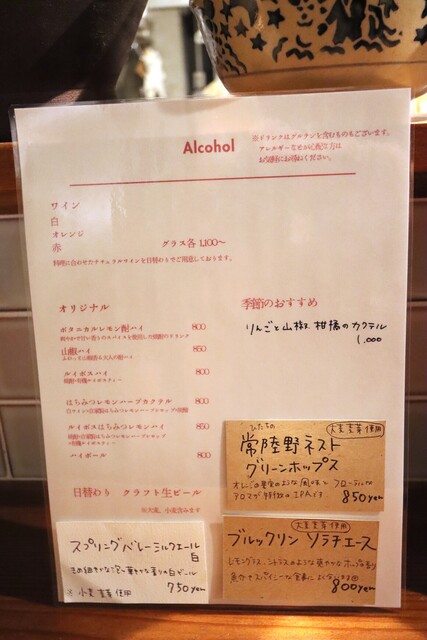 Alcohol
※ドリンクはグルテンを含むものもございます。
アレルギーなど心配な方は
お気軽にお尋ねください。
ワイン
白
オレンジ
赤
グラス各 1,100〜
料理に合わせたナチュラルワインを日替わりでご用意しております。
オリジナル
ボタニカルレモン酎ハイ 800
山椒ハイ 850
ルイボスハイ 800
はちみつレモンハーブカクテル 800
ルイボスはちみつレモンハイ 850
ハイボール 800
日替わり クラフト生ビール
季節のおすすめ
りんごと山椒、柑橘のカクテル
1,000
ひたちの
大麦麦芽使用
常陸野ネスト
グリーンホップス
アロマが特徴のIPAです
850yen
スプリングバレーシルクエール
白
きめ細かな泡と華やかな香りの白ビール
小麦麦芽使用
750yen
大麦麦芽使用
ブルックリン ソラチエース
レモングラス、シトラスのような爽やかなホップの香り
800yen